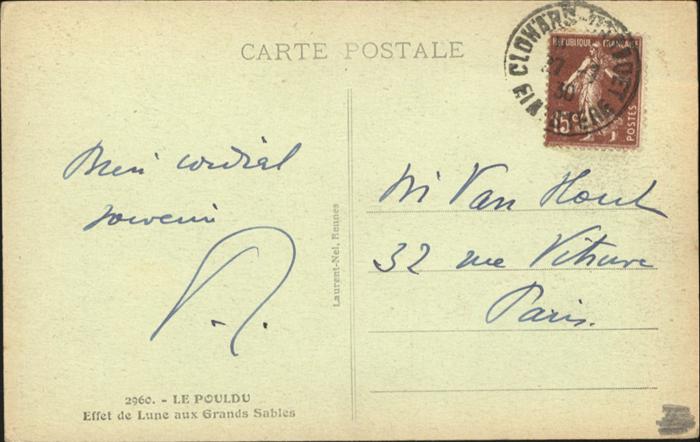 CARTE POSTALE
REPUBLIQUE FRANÇAISE
15c
POSTES
CLOHARS
27 -7
30
Bien cordial
souvenir
Mr Van Hout
32 rue Vitruve
Paris.
Laurent-Nel, Rennes
2960. - LE POULDU
Effet de Lune aux Grands Sables